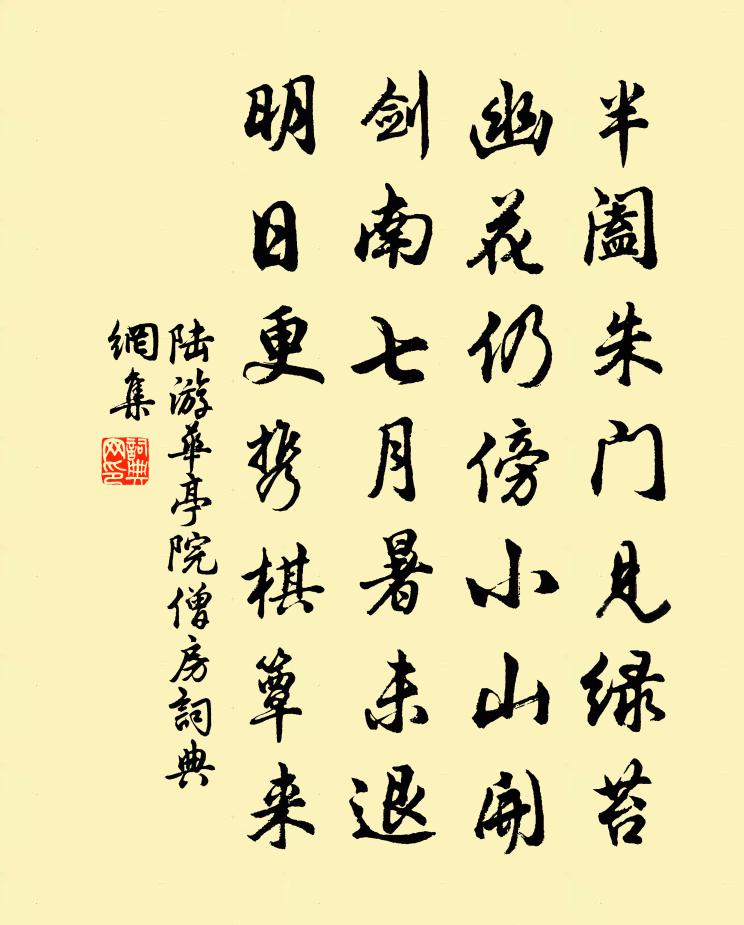 半阖朱门见绿苔
幽花仍傍小山開
剑南七月暑未退
明日更携棋簟来
陆游華亭院僧房詞典
網集
詞典
网印